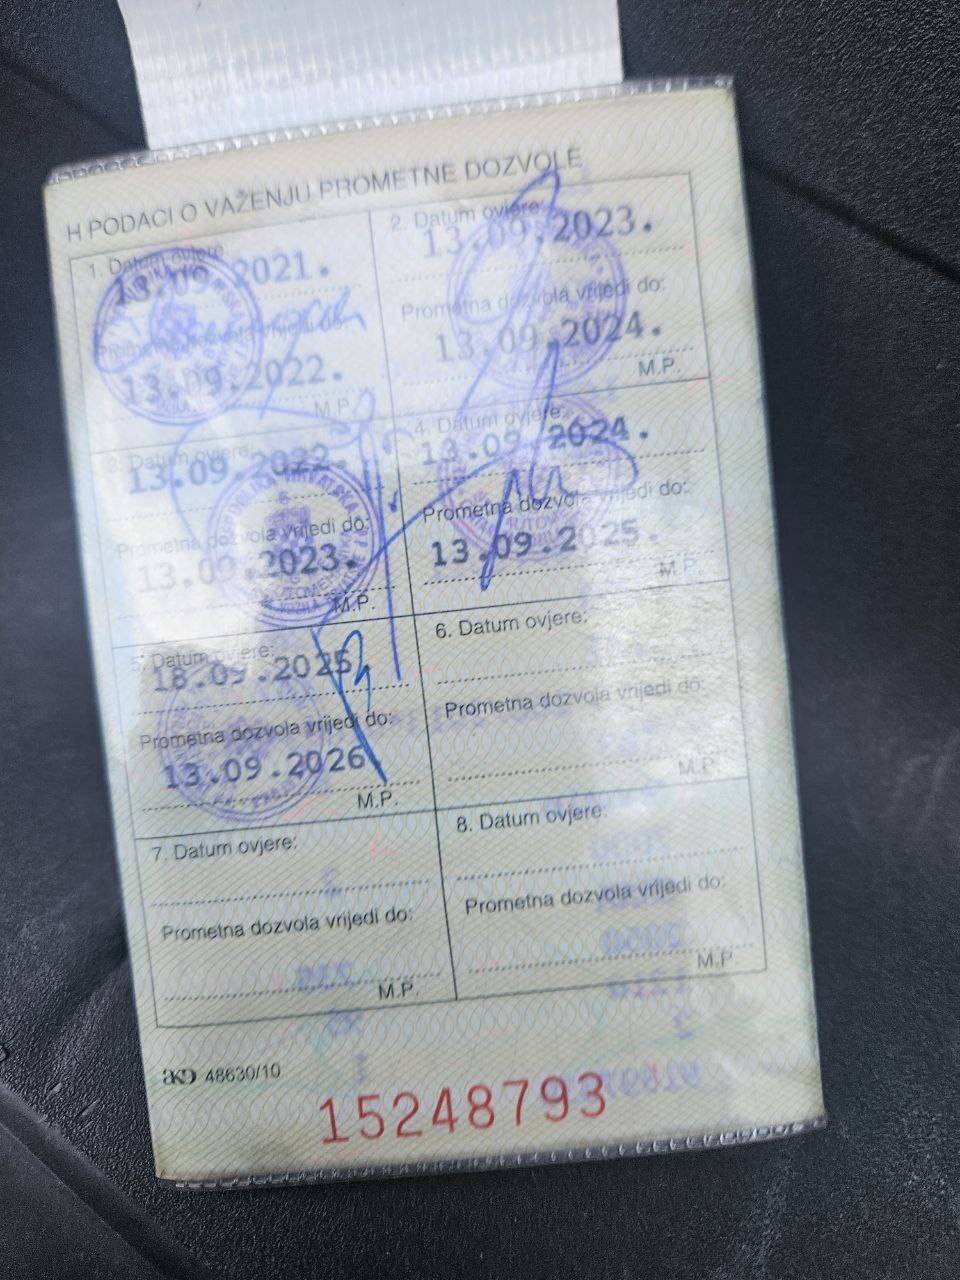 H PODACI O VAŽENJU PROMETNE DOZVOLE
1. Datum ovjere
13.09.2021.
Prometna dozvola vrijedi do:
13.09.2022.
M.P.
2. Datum ovjere:
13.09.2023.
Prometna dozvola vrijedi do:
13.09.2024.
M.P.
3. Datum ovjere:
13.09.2022.
Prometna dozvola vrijedi do:
13.09.2023.
M.P.
4. Datum ovjere:
13.09.2024.
Prometna dozvola vrijedi do:
13.09.2025.
M.P.
5. Datum ovjere:
18.09.2025
Prometna dozvola vrijedi do:
13.09.2026
M.P.
6. Datum ovjere:
Prometna dozvola vrijedi do:
M.P.
7. Datum ovjere:
Prometna dozvola vrijedi do:
M.P.
8. Datum ovjere:
Prometna dozvola vrijedi do:
M.P.
AKD 48630/10
15248793